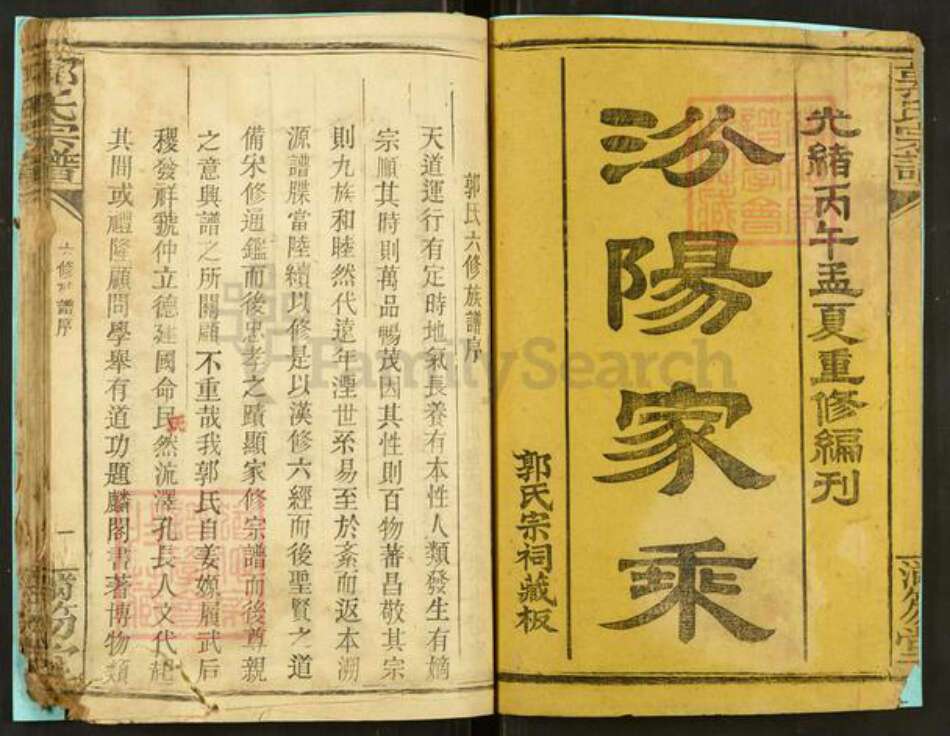 光緒丙午孟夏重修編刊
汾陽家乘
郭氏宗祠藏板
郭氏宗譜
滿笏堂
郭氏六修族譜序
天道運行有定時地氣長養有本性人類發生有嫡
宗順其時則萬品暢茂因其性則百物蕃昌敬其宗
則九族和睦然代遠年湮世系易至於紊而返本溯
源譜牒當陸續以修是以漢修六經而後聖賢之道
備宋修通鑑而後忠孝之蹟顯家修宗譜而後尊親
之意興譜之所關顧不重哉我郭氏自姜嫄履武后
稷發祥虢仲立德建國命民然流澤孔長人文代起
氏
其間或禮隆顧問學舉有道功題麟閣書著博物類
郭氏宗譜
六修族譜序
一
滿笏堂
FamilySearch